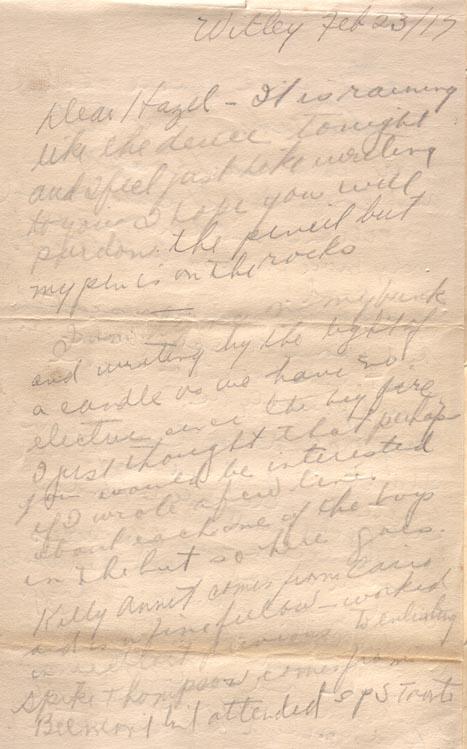 Witley Feb 23/17
Dear Hazel - It is raining
like the deuce tonight
and I feel just like writing
to you. I hope you will
pardon the pencil but
my pen is on the rocks
I am on my bunk
and writing by the light of
a candle as we have no
electric since the big fire
I just thought that perhaps
you would be interested
if I wrote a few lines
about each one of the boys
in the hut so here goes.
Kelly comes from
and is a fine fellow - worked
in previous to enlisting
Spike Thompson comes from
Belmont but attended S P S